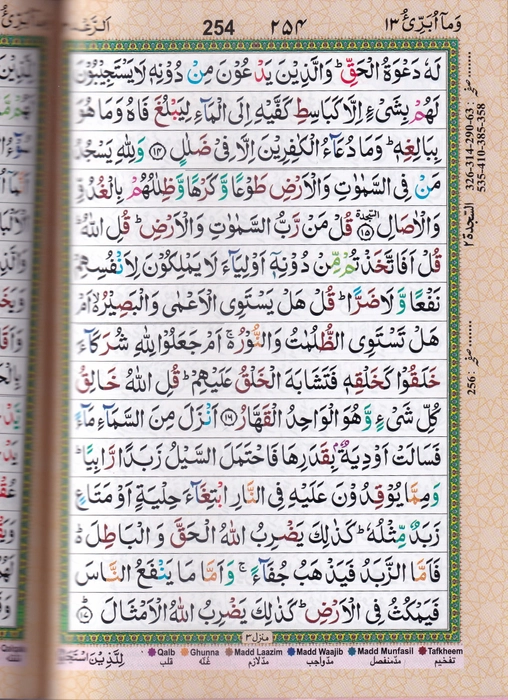 وَمَآ اُبَرِّئُ ١٣
٢٥٤ 254
اَلرَّعْد
لَهٗ دَعْوَةُ الْحَقِّ ؕ وَالَّذِيْنَ يَدْعُوْنَ مِنْ دُوْنِهٖ لَا يَسْتَجِيْبُوْنَ
لَهُمْ بِشَىْءٍ اِلَّا كَبَاسِطِ كَفَّيْهِ اِلَى الْمَآءِ لِيَبْلُغَ فَاهُ وَمَا هُوَ
بِبَالِغِهٖ ؕ وَمَا دُعَآءُ الْكٰفِرِيْنَ اِلَّا فِىْ ضَلٰلٍ ﴿١٤﴾ وَلِلّٰهِ يَسْجُدُ
مَنْ فِى السَّمٰوٰتِ وَالْاَرْضِ طَوْعًا وَّكَرْهًا وَّظِلٰلُهُمْ بِالْغُدُوِّ
وَالْاٰصَالِ ۩ ﴿١٥﴾ قُلْ مَنْ رَّبُّ السَّمٰوٰتِ وَالْاَرْضِ ؕ قُلِ اللّٰهُ ؕ
قُلْ اَفَاتَّخَذْتُمْ مِّنْ دُوْنِهٖۤ اَوْلِيَآءَ لَا يَمْلِكُوْنَ لِاَنْفُسِهِمْ
نَفْعًا وَّلَا ضَرًّا ؕ قُلْ هَلْ يَسْتَوِى الْاَعْمٰى وَالْبَصِيْرُ ۙ اَمْ
هَلْ تَسْتَوِى الظُّلُمٰتُ وَالنُّوْرُ ۚ اَمْ جَعَلُوْا لِلّٰهِ شُرَكَآءَ
خَلَقُوْا كَخَلْقِهٖ فَتَشَابَهَ الْخَلْقُ عَلَيْهِمْ ؕ قُلِ اللّٰهُ خَالِقُ
كُلِّ شَىْءٍ وَّهُوَ الْوَاحِدُ الْقَهَّارُ ﴿١٦﴾ اَنْزَلَ مِنَ السَّمَآءِ مَآءً
فَسَالَتْ اَوْدِيَةٌۢ بِقَدَرِهَا فَاحْتَمَلَ السَّيْلُ زَبَدًا رَّابِيًا ؕ
وَمِمَّا يُوْقِدُوْنَ عَلَيْهِ فِى النَّارِ ابْتِغَآءَ حِلْيَةٍ اَوْ مَتَاعٍ
زَبَدٌ مِّثْلُهٗ ؕ كَذٰلِكَ يَضْرِبُ اللّٰهُ الْحَقَّ وَ الْبَاطِلَ ؕ
فَاَمَّا الزَّبَدُ فَيَذْهَبُ جُفَآءً ۚ وَاَمَّا مَا يَنْفَعُ النَّاسَ
فَيَمْكُثُ فِى الْاَرْضِ ؕ كَذٰلِكَ يَضْرِبُ اللّٰهُ الْاَمْثَالَ ؕ ﴿١٧﴾
منزل ٣
لِلَّذِيْنَ اسْتَجَابُوْا
Qalb Ghunna Madd Laazim Madd Waajib Madd Munfasil Tafkheem
قلب غُنّہ مدّلازم مدّواجب مدّمنفصل تفخیم
السجدة ٢
326-314-290-63 :
535-410-385-358
256 :